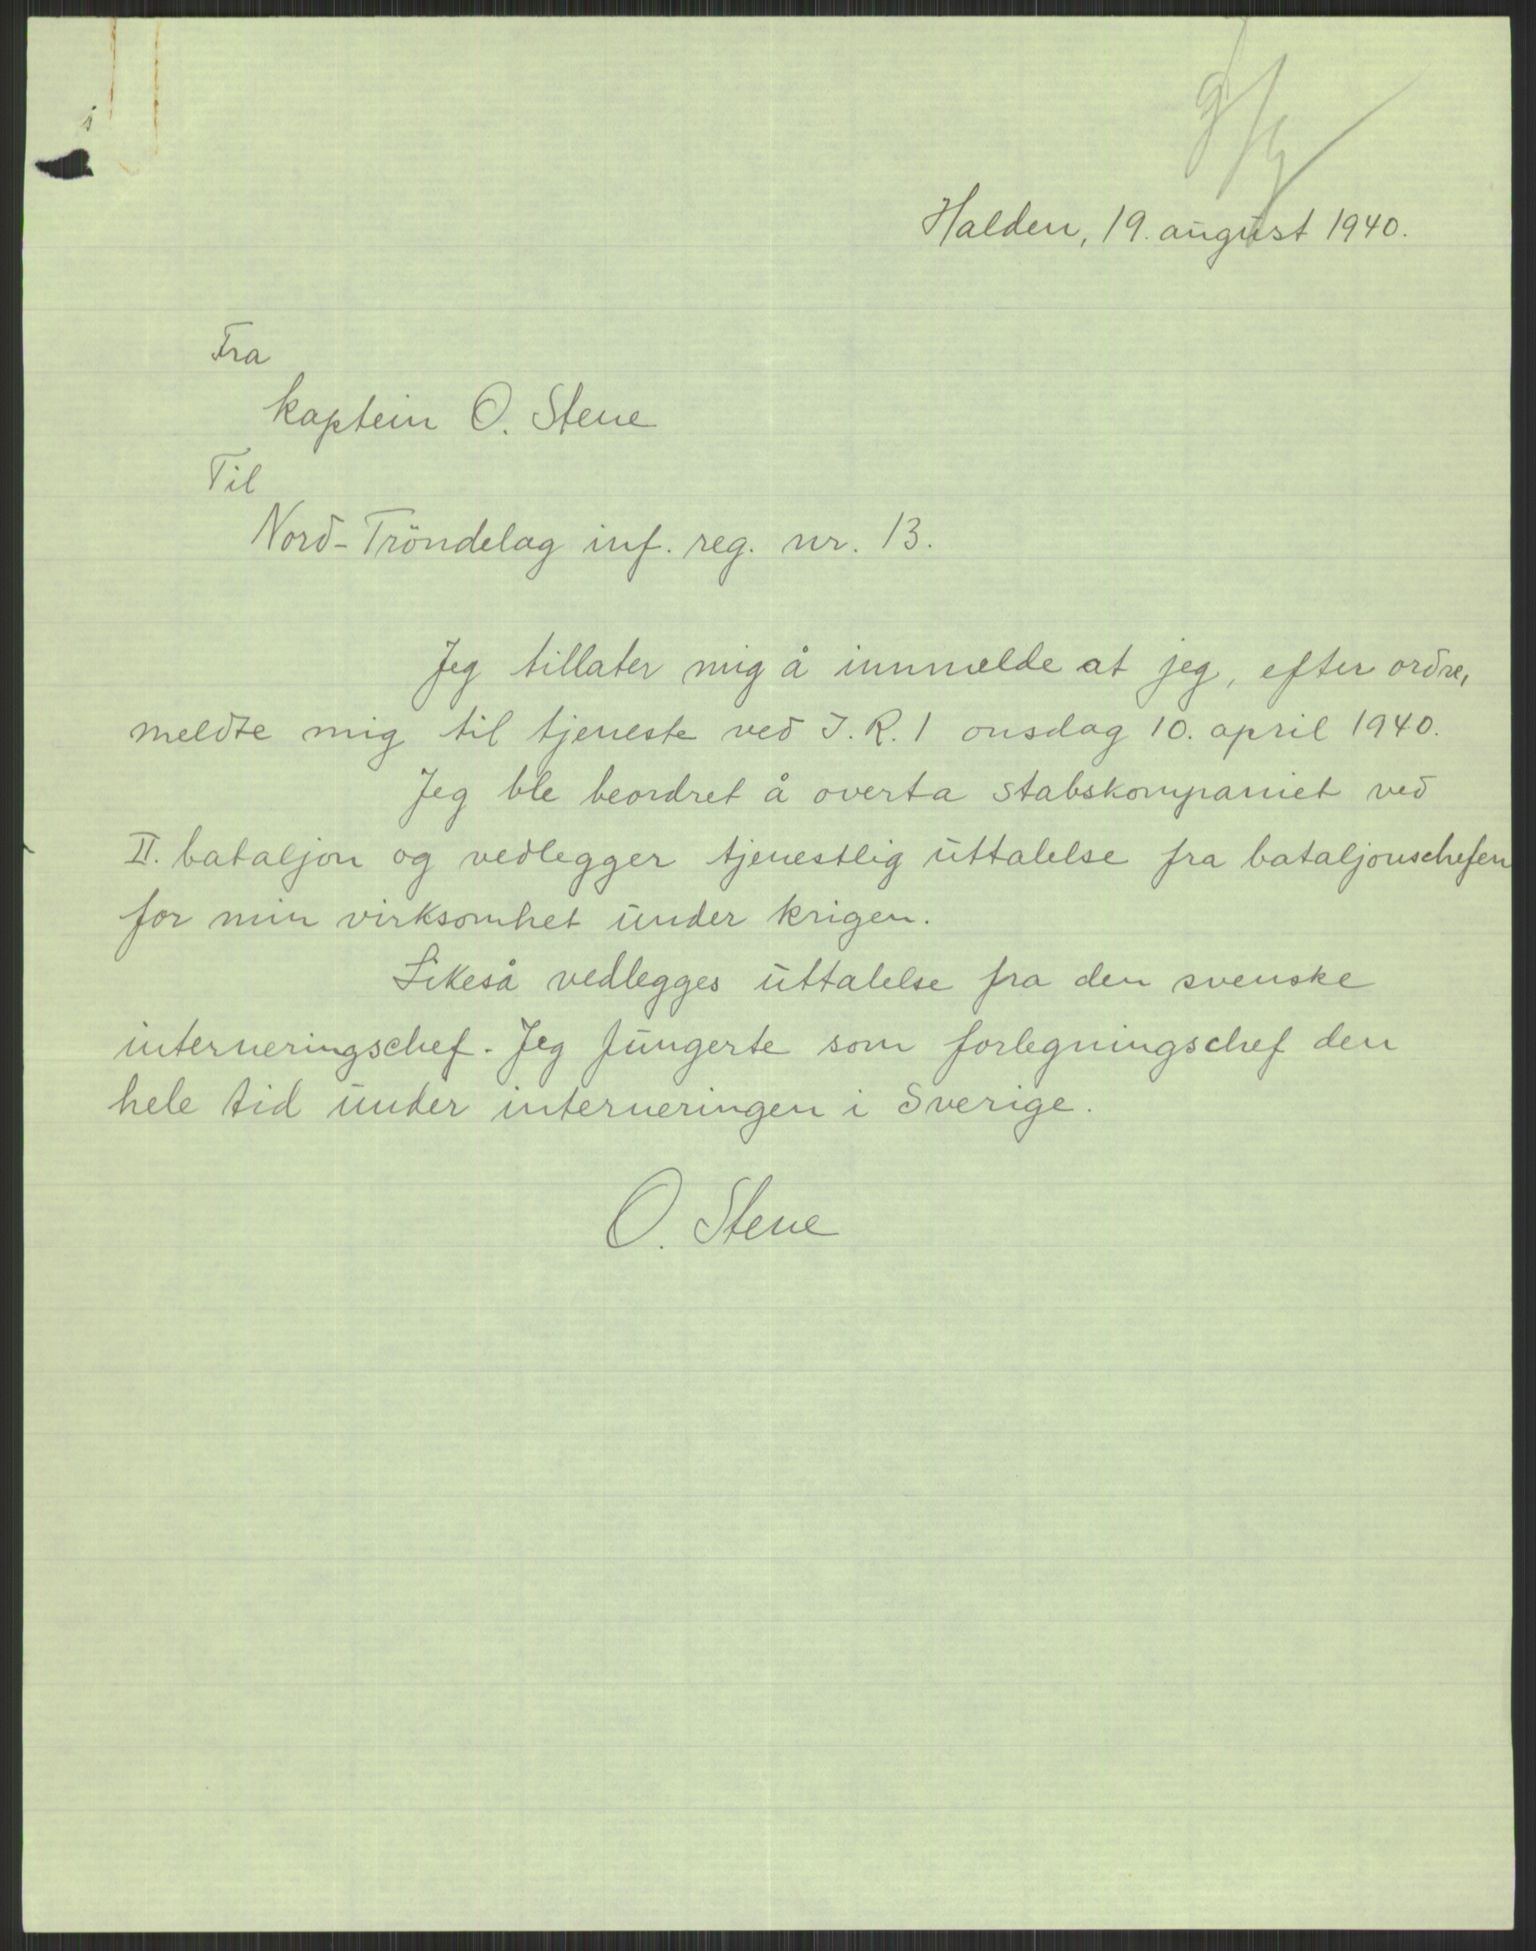 Halden, 19. august 1940.
Fra
kaptein O. Stene
Til
Nord-Tröndelag inf. reg. nr. 13.
Jeg tillater mig å innmelde at jeg, efter ordre,
meldte mig til tjeneste ved I.R. 1 onsdag 10. april 1940.
Jeg ble beordret å overta stabskompaniet ved
II. bataljon og vedlegger tjenestlig uttalelse fra bataljonschefen
for min virksomhet under krigen.
Likeså vedlegges uttalelse fra den svenske
interneringschef. Jeg fungerte som forlegningschef den
hele tid under interneringen i Sverige.
O. Stene